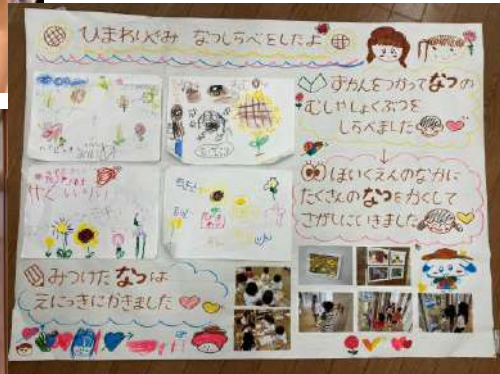 ひまわりぐみ なつしらべをしたよ
ずかんをつかってなつの
むしやしょくぶつを
しらべました
↓
ほいくえんのなかに
たくさんのなつをかくして
さがしにいきました
みつけたなつは
えにっきにかきました